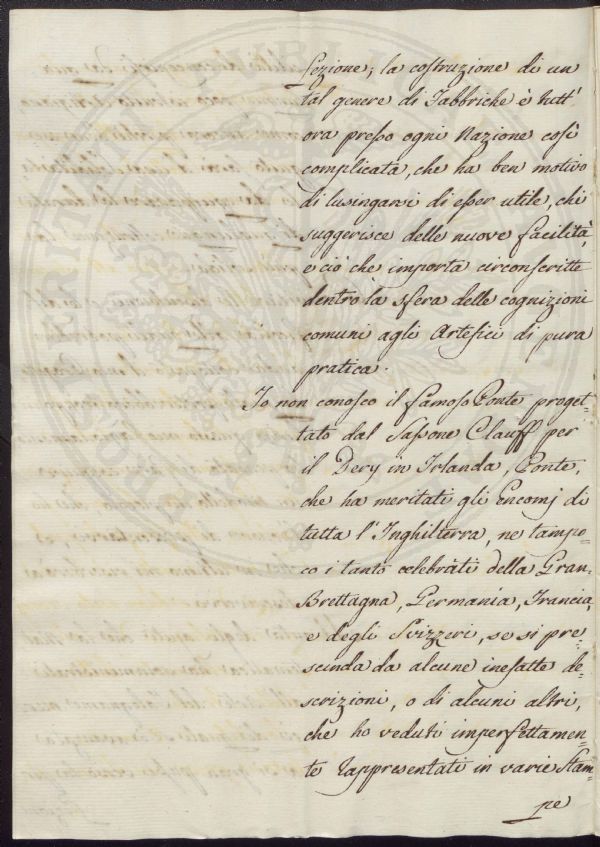 fezione; la costruzione di un
tal genere di Fabbriche è tutt'
ora presso ogni Nazione così
complicata, che ha ben motivo
di lusingarsi di esser utile, chi
suggerisce delle nuove facilità,
e ciò che importa circonscritte
dentro la sfera delle cognizioni
comuni agli Artefici di pura
pratica.
Io non conosco il famoso Ponte proget=
tato dal Sassone Clauff per
il Dery in Irlanda, Ponte,
che ha meritati gli Encomj di
tutta l'Inghilterra, ne tampo=
co i tanto celebràti della Gran-
Brettagna, Germania, Francia,
e degli Svizzeri, se si pre=
scinda da alcune inesatte de=
scrizioni, o di alcuni altri,
che ho veduti imperfettamen=
te rappresentati in varie Stam=
pe